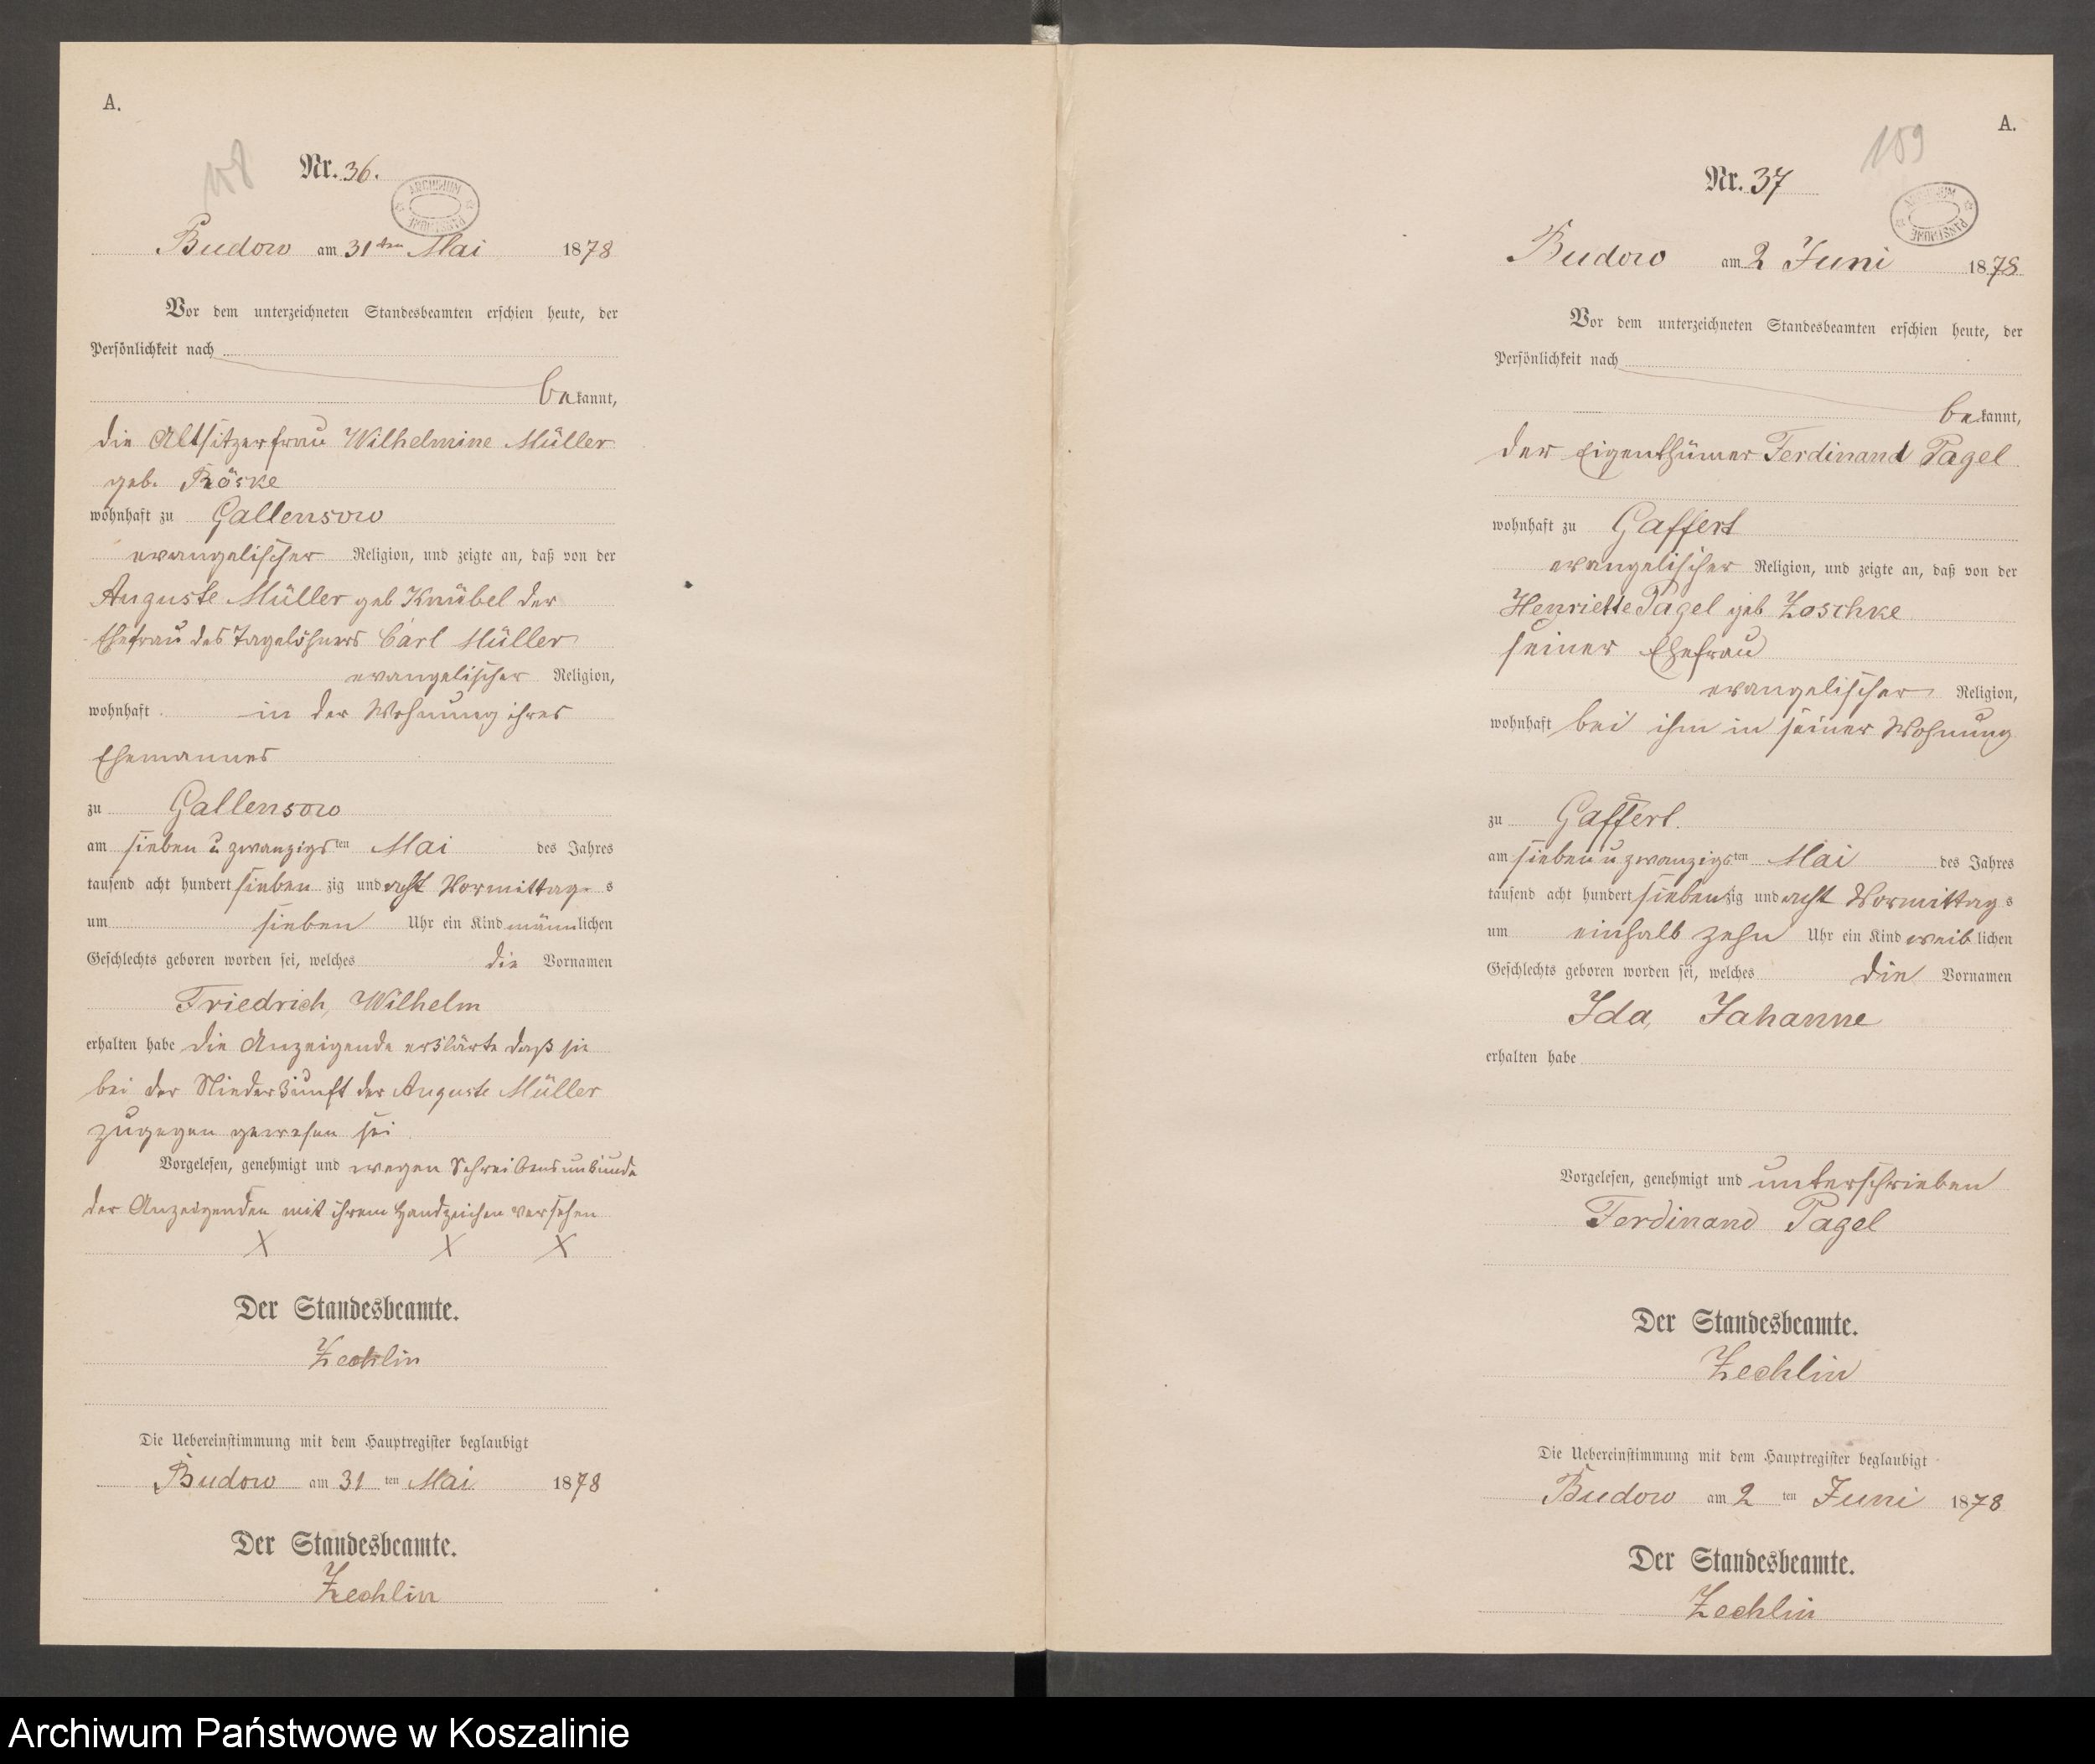 A.
Nr. 36.
ARCHIWUM
PAŃSTWOWE
Budow am 31ten Mai 1878
Vor dem unterzeichneten Standesbeamten erschien heute, der
Persönlichkeit nach
bekannt,
die Altsitzerfrau Wilhelmine Müller
geb. Röske
wohnhaft zu Gallensow
evangelischer Religion, und zeigte an, daß von der
Auguste Müller geb Knübel der
Ehefrau des Tagelöhners Carl Müller
evangelischer Religion,
wohnhaft in der Wohnung ihres
Ehemannes
zu Gallensow
am sieben u zwanzigsten Mai des Jahres
tausend acht hundert siebenzig und acht Vormittags
um sieben Uhr ein Kind männlichen
Geschlechts geboren worden sei, welches die Vornamen
Friedrich, Wilhelm
erhalten habe die Anzeigende erklärte daß sie
bei der Niederkunft der Auguste Müller
zugegen gewesen sei
Vorgelesen, genehmigt und wegen Schreibensunkunde
der Anzeigenden mit ihrem Handzeichen versehen
X X X
Der Standesbeamte.
Zechlin
Die Uebereinstimmung mit dem Hauptregister beglaubigt
Budow am 31 ten Mai 1878
Der Standesbeamte.
Zechlin
A.
159
Nr. 37
ARCHIWUM
PAŃSTWOWE
Budow am 2 Juni 1878
Vor dem unterzeichneten Standesbeamten erschien heute, der
Persönlichkeit nach
bekannt,
der Eigenthümer Ferdinand Pagel
wohnhaft zu Gaffert
evangelischer Religion, und zeigte an, daß von der
Henriette Pagel geb Zoschke
seiner Ehefrau
evangelischer Religion,
wohnhaft bei ihm in seiner Wohnung
zu Gaffert.
am sieben u zwanzigsten Mai des Jahres
tausend acht hundert siebenzig und acht Vormittags
um einhalb zehn Uhr ein Kind weiblichen
Geschlechts geboren worden sei, welches die Vornamen
Ida, Johanne
erhalten habe
Vorgelesen, genehmigt und unterschrieben
Ferdinand Pagel
Der Standesbeamte.
Zechlin
Die Uebereinstimmung mit dem Hauptregister beglaubigt
Budow am 2 ten Juni 1878
Der Standesbeamte.
Zechlin
Archiwum Państwowe w Koszalinie